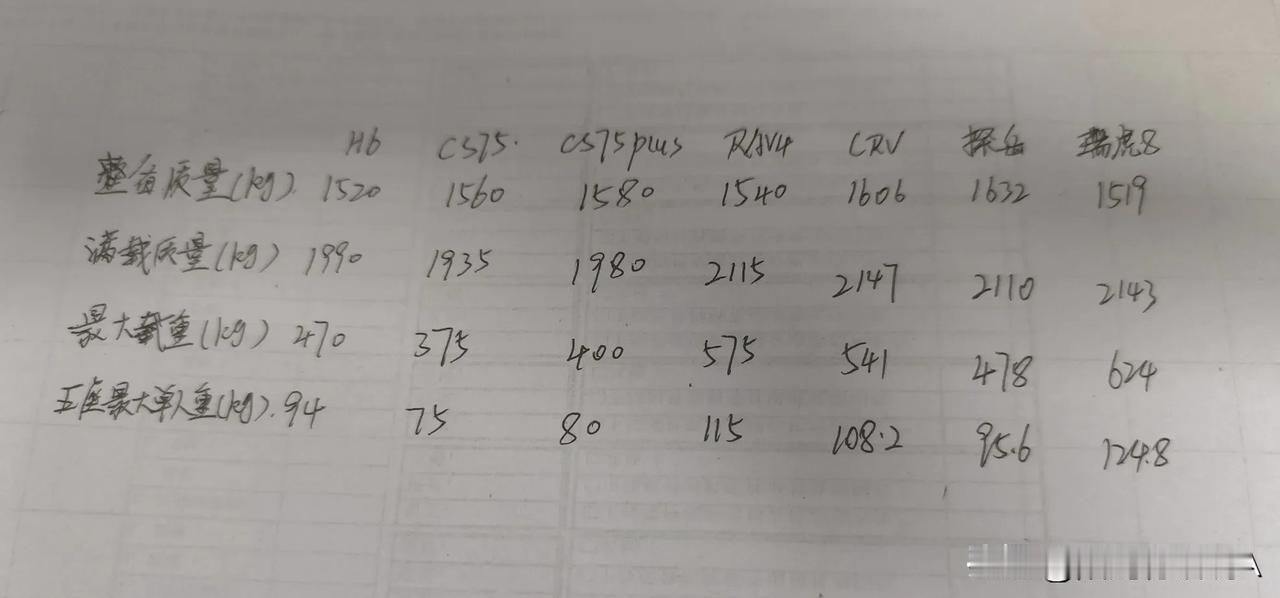 H6 CS75. CS75plus RAV4 CRV 探岳 瑞虎8
整备质量(kg). 1520 1560 1580 1540 1606 1632 1519
满载质量(kg) 1990 1935 1980 2115 2147 2110 2143
最大载重(kg) 470 375 400 575 541 478 624
五座最大单人重(kg). 94 75 80 115 108.2 95.6 124.8